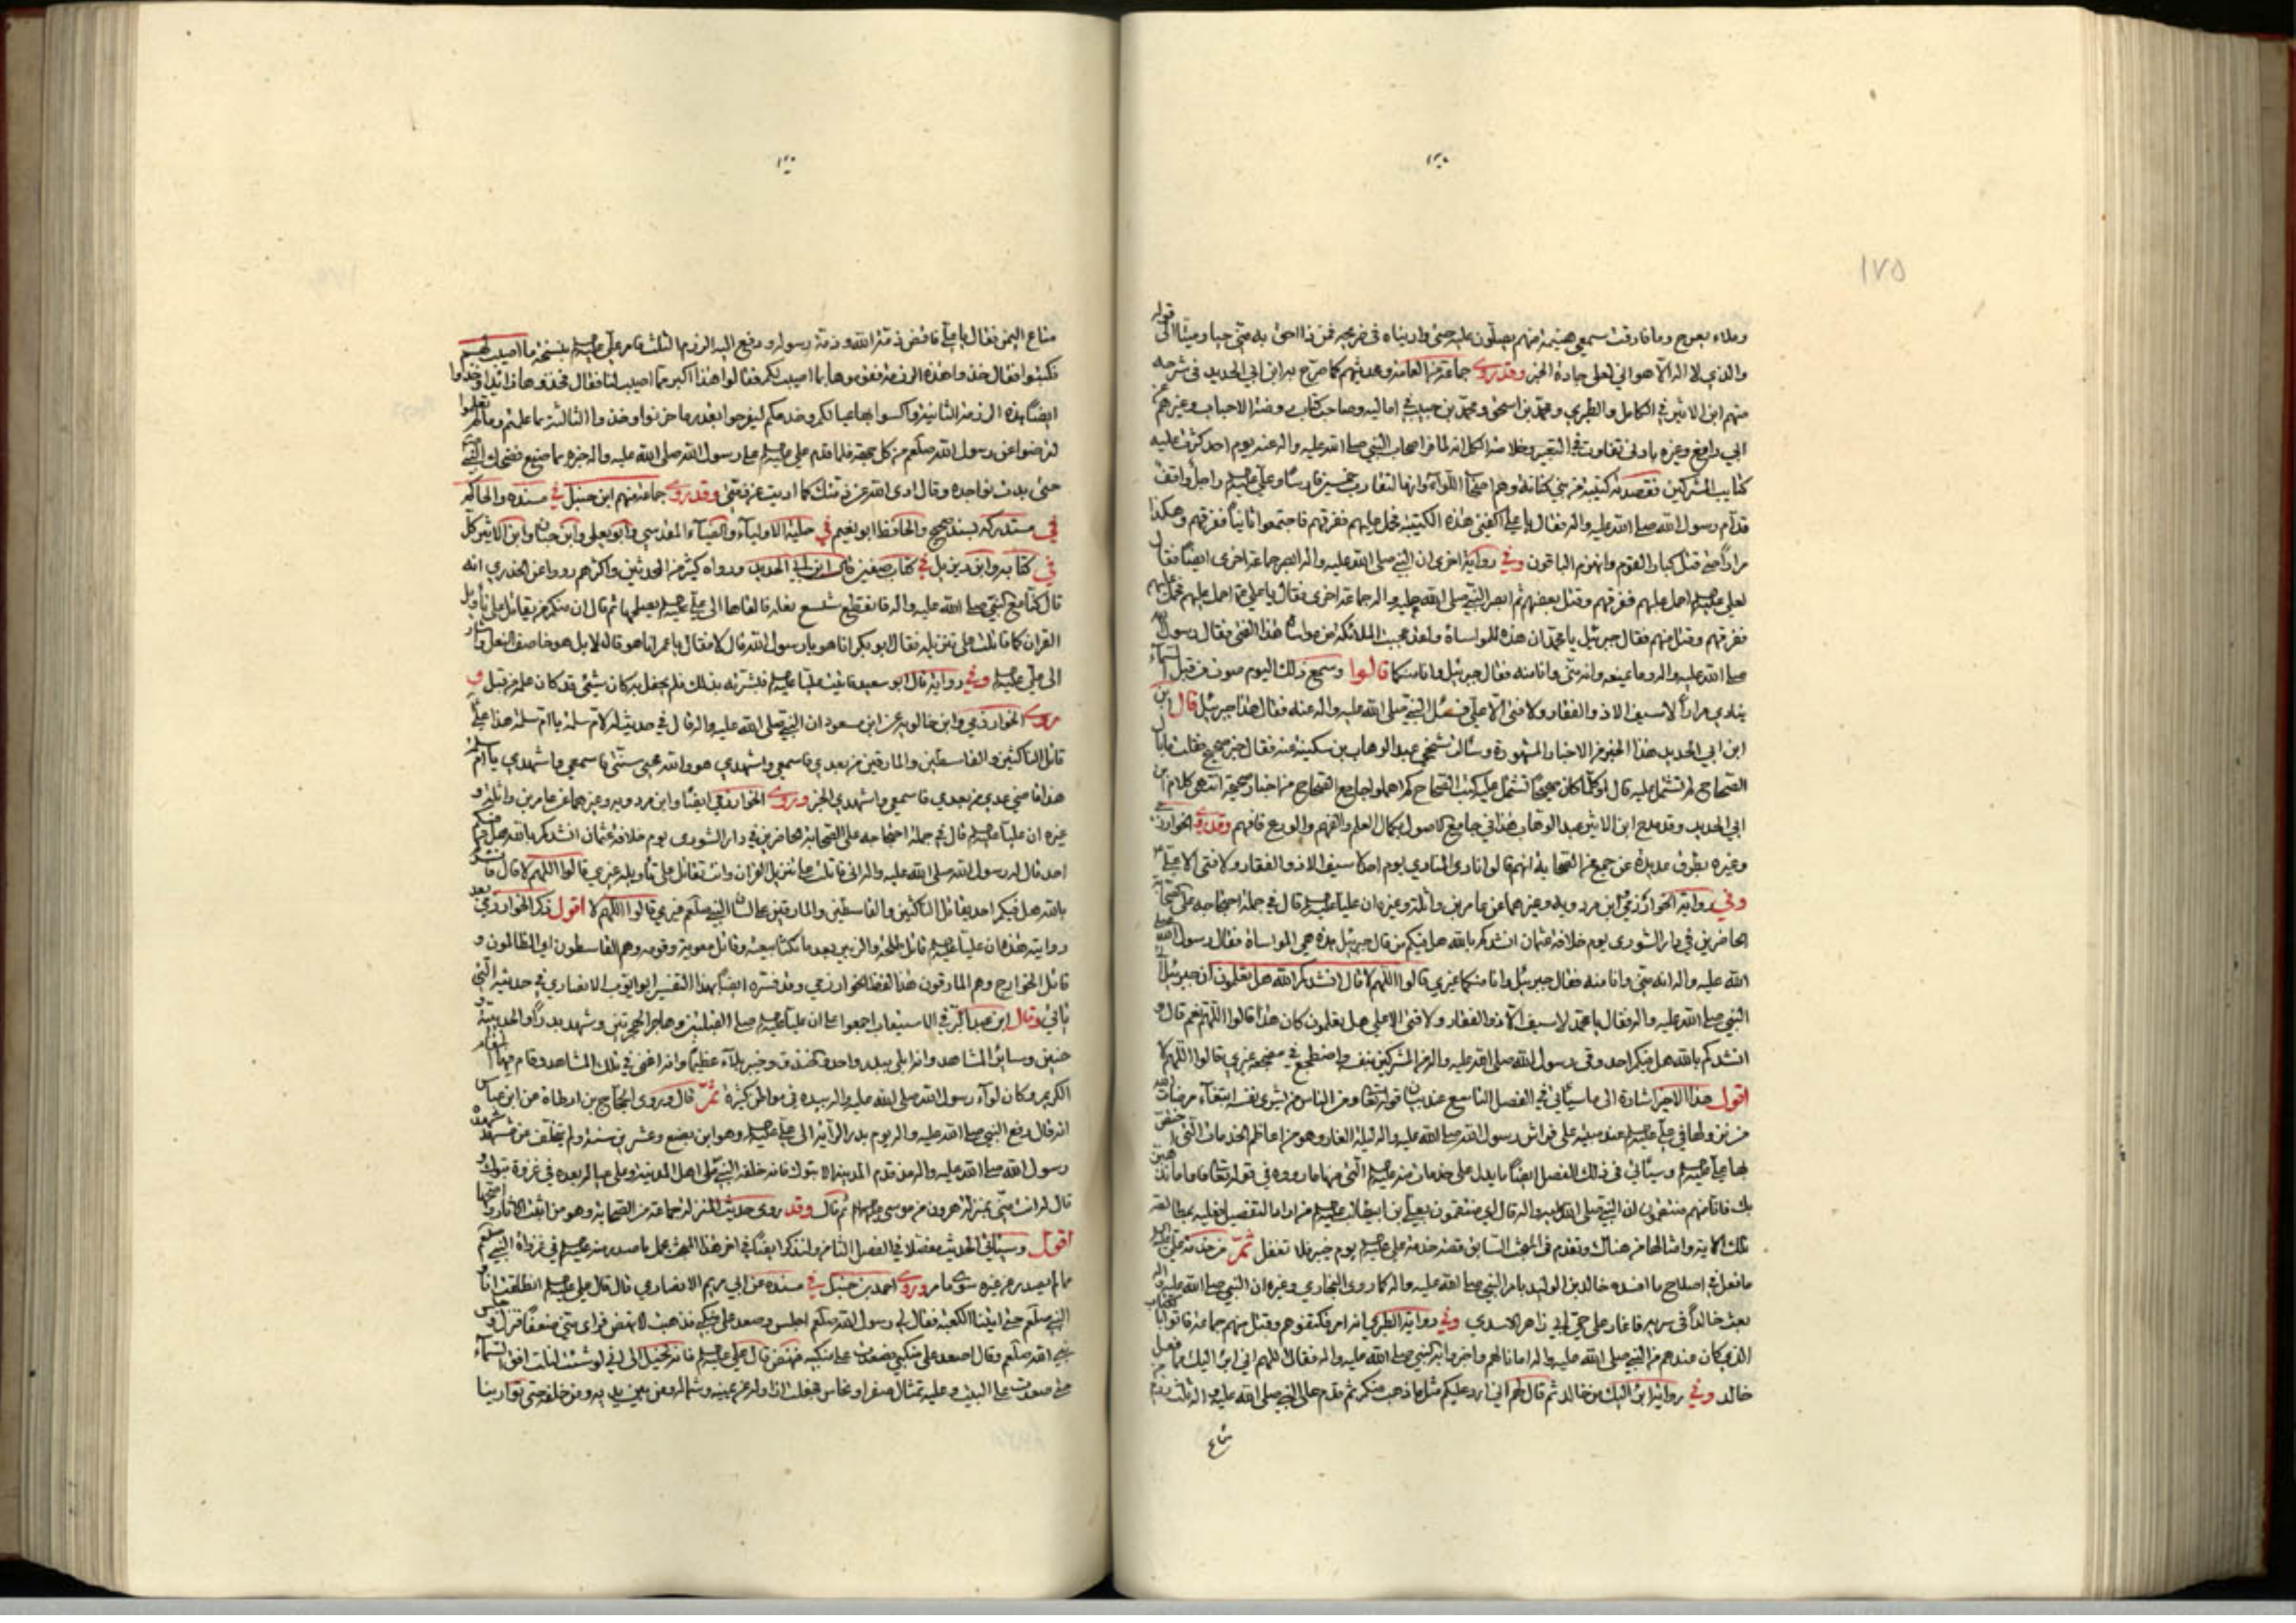 ١٧٥
وملاء يعرج وما فارقت سمعي هينمة منهم يصلون عليه حتى واريناه في ضريحه فمن ذا احق به مني حيا وميتا الى قوله
والذي لا اله الا هو اني لعلى جادة الحق وقد روى جماعة من العامة ومحدثيهم كما صرح به ابن ابي الحديد في شرحه
منهم ابن الاثير في الكامل والطبري ومحمد بن اسحق ومحمد بن حبيب في اماليه وصاحب كتاب روضة الاحباب وغيرهم عن
ابي رافع وغيره بادنى تفاوت في التعبير وخلاصة الكل انه لما فر اصحاب النبي صلى الله عليه واله عنه يوم احد كثرت عليه
كتايب المشركين فقصدته كتيبة من بني كنانة وهم اصحاب اللواء وانها لتقارب خمسين فارسا وعلي عليه السلم راجل واقف
قدام رسول الله صلى الله عليه واله فقال يا علي اكفني هذه الكتيبة فحمل عليهم ففرقهم فاجتمعوا ثانيا ففرقهم وهكذا
مرارا حتى قتل كبار القوم وانهزم الباقون وفي رواية اخرى ان النبي صلى الله عليه واله ابصر جماعة اخرى ايضا فقال
لعلي عليه السلم احمل عليهم ففرقهم وقتل بعضهم ثم ابصر النبي صلى الله عليه واله جماعة اخرى فقال يا علي احمل عليهم فحمل عليهم
ففرقهم وقتل منهم فقال جبرئيل يا محمد ان هذه للمواساة ولقد عجبت الملائكة من مواساة هذا الفتى فقال رسول الله
صلى الله عليه واله وما يمنعه وانه مني وانا منه فقال جبرئيل وانا منكما قالوا وسمع ذلك اليوم صوت من قبل السماء
ينادي مرارا لا سيف الا ذو الفقار ولا فتى الا علي فسئل النبي صلى الله عليه واله عنه فقال هذا جبرئيل قال
ابن ابي الحديد هذا الخبر من الاخبار المشهورة وسألت شيخي عبد الوهاب بن سكينة عنه فقال خبر صحيح فقلت ما بال
الصحاح لم تشتمل عليه قال اوكلما كان صحيحا تشتمل عليه كتب الصحاح كم اهملوا جامعو الصحاح من اخبار صحيحة انتهى كلام ابن
ابي الحديد وقد مدح ابن الاثير عبد الوهاب هذا في جامع الاصول بكمال العلم والفهم والورع فافهم وقد روى الخوارزمي
وغيره بطرق عديدة عن جمع من الصحابة انهم قالوا نادى المنادي يوم احد لا سيف الا ذو الفقار ولا فتى الا علي
وفي رواية الخوارزمي وابن مردويه وغيرهما عن عامر بن واثلة وغيره ان عليا عليه السلم قال في جملة احتجاجه على الصحابة
الحاضرين في دار الشورى يوم خلافة عثمان انشدكم بالله هل فيكم من قال جبرئيل هذه هي المواساة فقال رسول الله صلى
الله عليه واله انه مني وانا منه فقال جبرئيل وانا منكما غيري قالوا اللهم لا قال انشدكم الله هل تعلمون ان جبرئيل اتى
النبي صلى الله عليه واله فقال يا محمد لا سيف الا ذو الفقار ولا فتى الا علي هل تعلمون كان هذا قالوا اللهم نعم قال و
انشدكم بالله هل فيكم احد وقى رسول الله صلى الله عليه واله من المشركين بنفسه واضطجع في مضجعه غيري قالوا اللهم لا
اقول هذا الاخير اشارة الى ما سيأتي في الفصل التاسع عند بيان قوله تعالى ومن الناس من يشري نفسه ابتغاء مرضات الله
من نزولها في علي عليه السلم عند مبيته على فراش رسول الله صلى الله عليه واله ليلة الغار وهو من اعاظم الخدمات التي اختص
بها علي عليه السلم وسيأتي في ذلك الفصل ايضا ما يدل على خدمات منه عليه السلم التي منها ما رووه في قوله تعالى فاما نذهبن
بك فانا منهم منتقمون ان النبي صلى الله عليه واله قال اي منتقمون بعلي بن ابيطالب عليه السلم من اراد التفصيل فعليه بمطالعة
تلك الاية وامثالها من هناك وتقدم في المبحث السابق قصة خدمة علي عليه السلم يوم خيبر فلا تغفل ثم من خدمة علي عليه السلم
ما فعل في اصلاح ما افسده خالد بن الوليد بامر النبي صلى الله عليه واله كما روى البخاري وغيره ان النبي صلى الله عليه واله
بعث خالدا في سرية فاغار على حي ابي زاهر الاسدي وفي رواية الطبري انه امر فكتفوهم وقتل منهم جماعة فاتوا بالكتاب
الذي كان عندهم من النبي صلى الله عليه واله امانا لهم واخبروا به النبي صلى الله عليه واله فقال اللهم اني ابرأ اليك مما فعل
خالد وفي رواية ابرأ اليك من خالد ثم قال لهم اني ارد عليكم مثل ما ذهب منكم ثم قدم على النبي صلى الله عليه واله ثلث رزم من
متاع
متاع اليمن فقال يا علي فاقض ذمة الله وذمة رسوله ودفع اليه الرزم الثلث فامر علي عليه السلم بنسخة ما اصيب لهم
فكتبوا فقال خذوا هذه الرزمة فقوموها بما اصيب لكم فقالوا هذا اكبر مما اصيب لنا فقال فخذوها فزائدا وخذوا
ايضا هذه الرزمة الثانية واكسوا بها عيالكم وخدمكم ليفرحوا بقدر ما حزنوا وخذوا الثالثة بما علمتم وما لم تعلموا
لترضوا عن رسول الله صلعم من كل جهة فلما قدم علي عليه السلم على رسول الله صلى الله عليه واله خبره بما صنع فضحك النبي
حتى بدت نواجده وقال ادى الله عن ذمتك كما اديت عن ذمتي وقد روى جماعة منهم ابن حنبل في مسنده والحاكم
في مستدركه بسند صحيح والحافظ ابو نعيم في حلية الاولياء والضياء المقدسي وابو يعلى وابن حبان وابن الاثير كل
في كتابه وابن ديزيل في كتاب صفين قال ابن ابي الحديد ورواه كثير من المحدثين واكثرهم رووا عن الخدري انه
قال كنا مع النبي صلى الله عليه واله فانقطع شسع نعله فالقاها الى علي عليه السلم يصلحها ثم قال ان منكم من يقاتل على تأويل
القران كما قاتلت على تنزيله فقال ابو بكر انا هو يا رسول الله قال لا فقال عمر انا هو قال لا بل هو خاصف النعل واشار
الى علي عليه السلم وفي رواية قال ابو سعيد فاتيت عليا عليه السلم فبشرته بذلك فلم يحفل به كان شئ قد كان علمه من قبل و
روى الخوارزمي وابن خالويه عن ابن مسعود ان النبي صلى الله عليه واله قال في حديث له لام سلمة يا ام سلمة هذا علي
قاتل الناكثين والقاسطين والمارقين من بعدي فاسمعي واشهدي هو والله محيي سنتي فاسمعي واشهدي يا ام سلمة
هذا قاضي عدي من بعدي فاسمعي واشهدي الخبر وروى الخوارزمي ايضا وابن مردويه وغيرهما عن عامر بن واثلة و
غيره ان عليا عليه السلم قال في جملة احتجاجه على الصحابة الحاضرين في دار الشورى يوم خلافة عثمان انشدكم بالله هل فيكم
احد قال له رسول الله صلى الله عليه واله اني قاتلت على تنزيل القران وانت تقاتل على تأويله غيري قالوا اللهم لا قال انشدكم
بالله هل فيكم احد يقاتل الناكثين والقاسطين والمارقين على لسان النبي صلعم غيري قالوا اللهم لا اقول ذكر الخوارزمي بعد
روايته هذه ان عليا عليه السلم قاتل طلحة والزبير بعد ما نكثا بيعته وقاتل معوية وقومه وهم القاسطون اي الظالمون و
قاتل الخوارج وهم المارقون هذا لفظ الخوارزمي وقد فسره ايضا بهذا التفسير ابو ايوب الانصاري في حديثه التي
تأتي وقال ابن عبد البر في الاستيعاب اجمعوا على ان عليا عليه السلم صلى القبلتين وهاجر الهجرتين وشهد بدرا والحديبية و
حنين وسائر المشاهد وانه ابلى ببدر واحد والخندق وخيبر بلاء عظيما وانه اغنى في تلك المشاهد وقام فيها المقام
الكريم وكان لواء رسول الله صلى الله عليه واله بيده في مواطن كثيرة ثم قال وروى الحجاج بن ارطاة عن ابن عباس
انه قال دفع النبي صلى الله عليه واله يوم بدر الراية الى علي عليه السلم وهو ابن بضع وعشرين سنة ولم يتخلف عن مشهد شهده
رسول الله صلى الله عليه واله منذ قدم المدينة الا تبوك فانه خلفه النبي على اهل المدينة وعلى عياله بعده في غزوة تبوك و
قال له انت مني بمنزلة هرون من موسى ثم قال وقد روى حديث المنزلة جماعة من الصحابة وهو من اثبت الاثار واصحها
اقول وسيأتي الحديث مفصلا في الفصل الثامن ولنذكر ايضا في اخر هذا المبحث مجمل ما صدر منه عليه السلم في غزوات النبي صلعم
مما لم يصدر من غيره سوى ما مر وروى احمد بن حنبل في مسنده عن ابي مريم الانصاري قال قال علي عليه السلم انطلقت انا و
النبي صلعم حتى اتينا الكعبة فقال لي رسول الله صلعم اجلس وصعد على منكبي فذهبت لانهض فراى مني ضعفا فنزل وجلس
نبي الله صلعم وقال اصعد على منكبي فصعدت على منكبيه فنهض قال علي عليه السلم فانه ليخيل الى اني لو شئت لنلت افق السماء
حتى صعدت على البيت وعليه تمثال صفر او نحاس فجعلت ازاوله عن يمينه وشماله ومن بين يديه ومن خلفه حتى توارينا